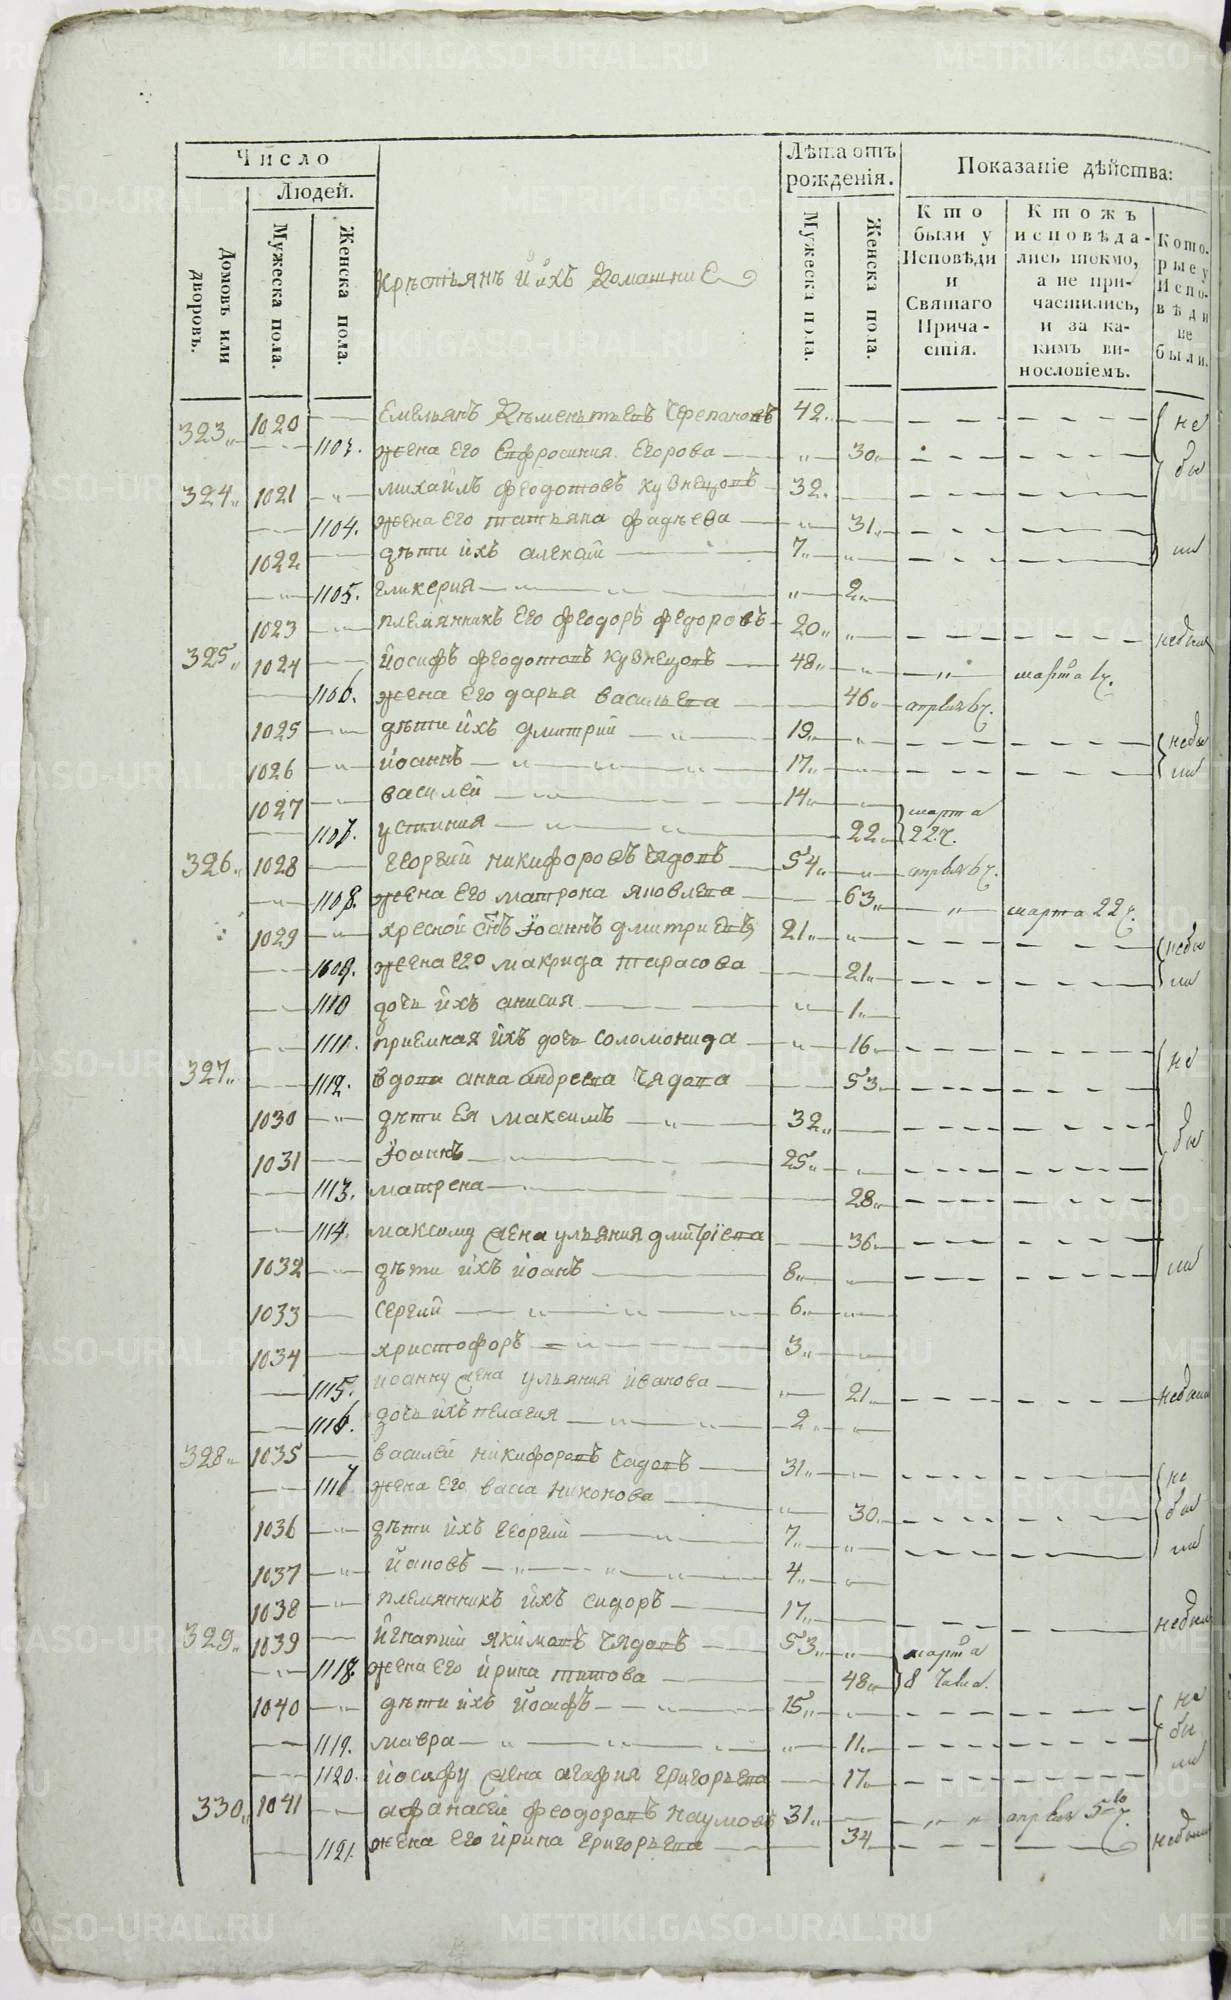 Число
Людей.
Домовъ или дворовъ.
Мужеска пола.
Женска пола.
Крѣстьянъ и ихъ домашние
Лѣта отъ рожденія.
Мужеска пола.
Женска пола.
Показаніе дѣйства:
Кто были у Исповѣди и Святаго Причастія.
Ктожъ исповѣдались токмо, а не причастились, и за какимъ винословіемъ.
Которые у Исповѣди не были.
323 1020 Емельянъ Клементьевъ 42 не
1103. жена его Евфросиния Егорова 30 бы
324 1021 михайлъ феодотовъ кузнецовъ 32 ли
1104. жена его татьяна фадѣева 31
1022 дѣти ихъ алексий 7
1105. гликерия 2
1023 племянникъ его феодоръ федоровъ 20 небыли
325 1024 йосифъ феодотовъ кузнецовъ 48 марта
1106. жена его дарья васильева 46 апреля 6 ч.
1025 дѣти ихъ дмитрий 19 небы
1026 йоаннъ 17 ли
1027 василей 14 марта
1107. устиния 22 22 ч.
326 1028 георгий никифоровъ чядовъ 54 апреля 6 ч.
1108. жена его матрона яковлева 63 марта 22 ч.
1029 хресной снъ йоаннъ дмитриевъ 21 небы
1109. жена его макрида тарасова 21 ли
1110 дочь ихъ анисия 1
1111. приемная ихъ дочь соломонида 16 не
327 1112. вдова анна андреева чядова 53
1030 дѣти ея максимъ 32 бы
1031 йоаннъ 25
1113. матрена 28
1114. максиму жена ульяния дмитріева 36
1032 дѣти ихъ йоанъ 8 ли
1033 сергий 6
1034 христофоръ 3
1115. иоанну жена ульяния иванова 21 небыли
1116. дочь ихъ пелагия 2
328 1035 василей никифоровъ чадовъ 31 не
1117 жена его васса никонова 30 бы
1036 дѣти ихъ георгий 7 ли
1037 йаковъ 4
1038 племянникъ ихъ сидоръ 17 небыли
329 1039 йгнатий якимовъ чядовъ 53 марта
1118. жена его ирина титова 48 8 числа.
1040 дѣти ихъ йосифъ 15 не
1119. мавра 11 бы
1120. йосифу жена агафия григорьева 17 ли
330 1041 афанасей феодоровъ наумовъ 31 апреля 5 го ч.
1121. жена его ирина григорьева 34 небыли
METRIKI.GASO-URAL.RU